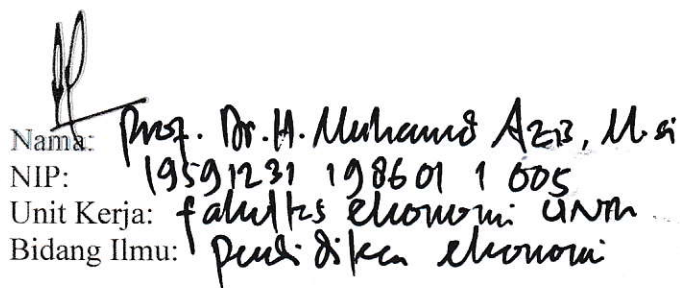 Nama: Prof. Dr. H. Muhamad Azis, M.si
NIP: 19591231 198601 1 005
Unit Kerja: fakultas ekonomi UNM
Bidang Ilmu: pendidikan ekonomi